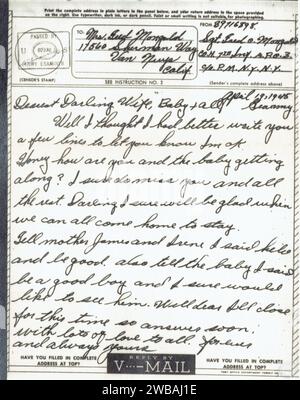 Print the complete address in plain letters in the panel below, and your return address in the space provided
on the right. Use typewriter, dark ink, or dark pencil. Faint or small writing is not suitable for photographing.
PASSED BY
U S
ARMY EXAMINER
(CENSOR'S STAMP)
TO
Mrs.
17560 Sherman Way
Van Nuys
Calif.
FROM
39745898
Sgt.
Co. H.
A.P.O. 3
℅ P.M. N.Y. N.Y.
(Sender's complete address above)
SEE INSTRUCTION NO. 2
April 9, 1945
Germany
Dearest Darling Wife, Baby & all
Well I thought I had better write you
a few lines to let you know I'm ok
Honey how are you and the baby getting
along? I sure do miss you and all
the rest. Darling I sure will be glad when
we can all come home to stay.
Tell mother James and Irene I said hello
and be good. also tell the baby I said
be a good boy and I sure would
like to see him. Well dear I'll close
for this time so answer soon.
with lots of love to all. forever
and always yours
HAVE YOU FILLED IN COMPLETE
ADDRESS AT TOP?
REPLY BY
V···—MAIL
HAVE YOU FILLED IN COMPLETE
ADDRESS AT TOP?
alamy
Image ID: 2WBAJ1E
www.alamy.com